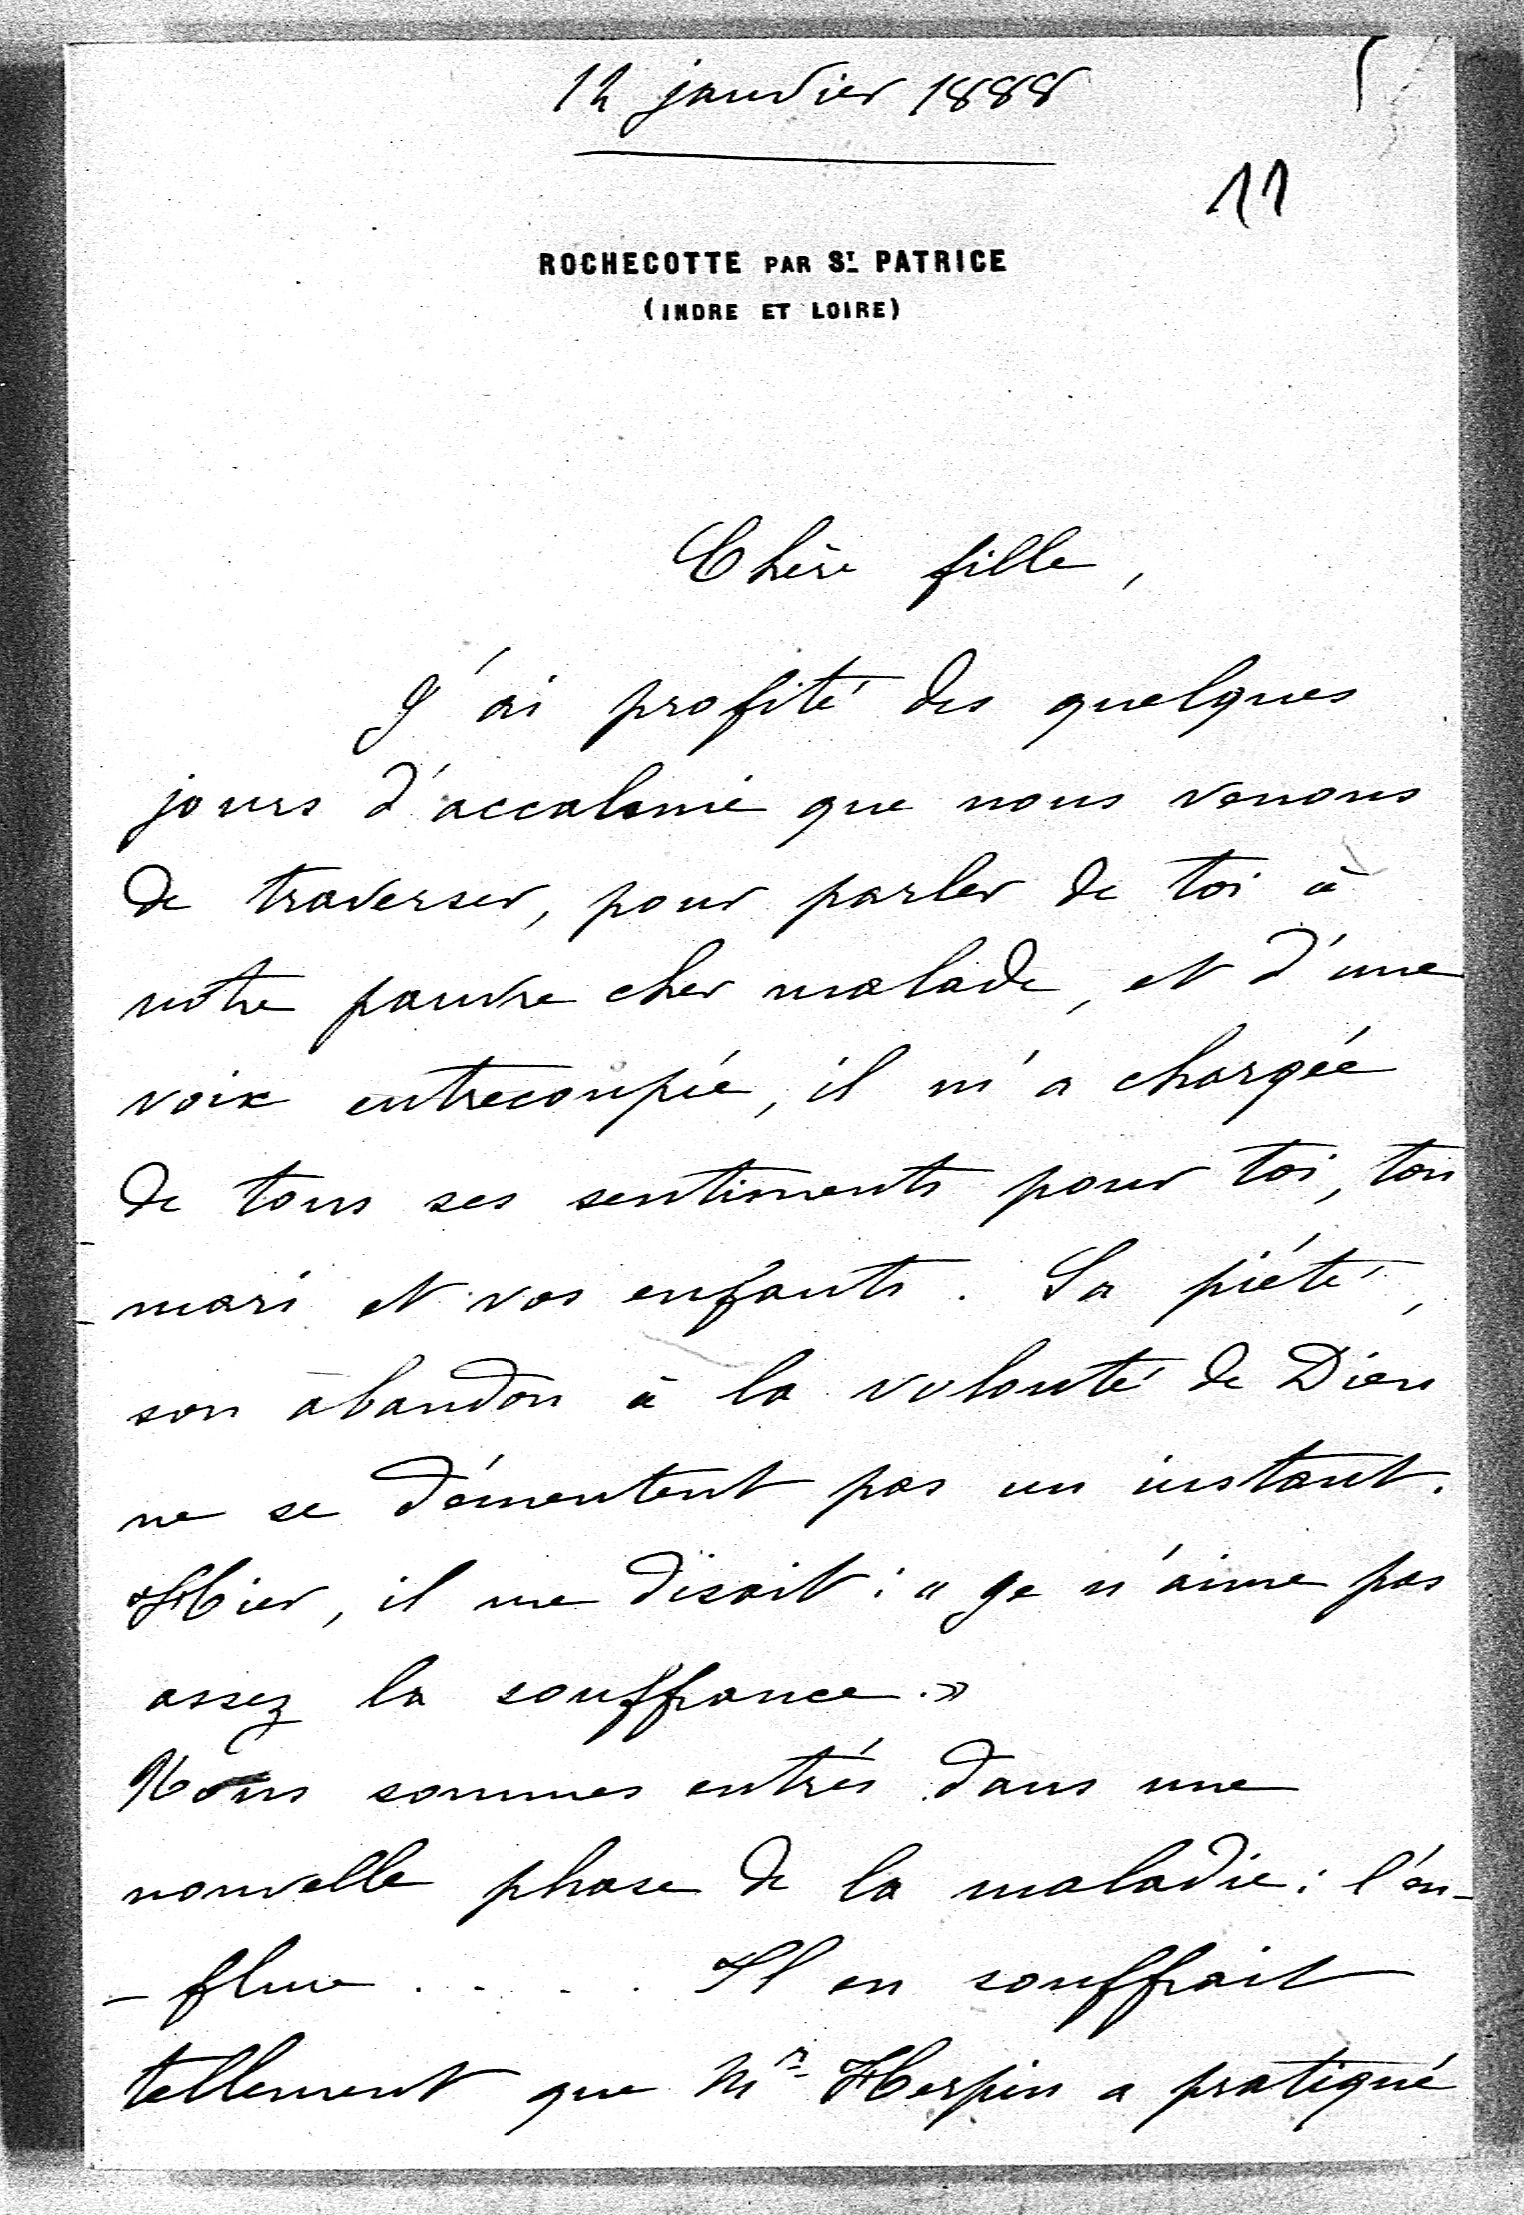 12 janvier 1888
11
ROCHECOTTE PAR St. PATRICE
(INDRE ET LOIRE)
Chère fille,
J'ai profité des quelques
jours d'accalmie que nous venons
de traverser, pour parler de toi à
notre pauvre cher malade, et d'une
voix entrecoupée, il m'a chargée
de tous ses sentiments pour toi, ton
mari et vos enfants. Sa piété,
son abandon à la volonté de Dieu
ne se démentent pas un instant.
Hier, il me disait : « Je n'aime pas
assez la souffrance. »
Nous sommes entrés dans une
nouvelle phase de la maladie : l'en-
- flure . . . . Il en souffrait
tellement que Mr. Herpin a pratiqué